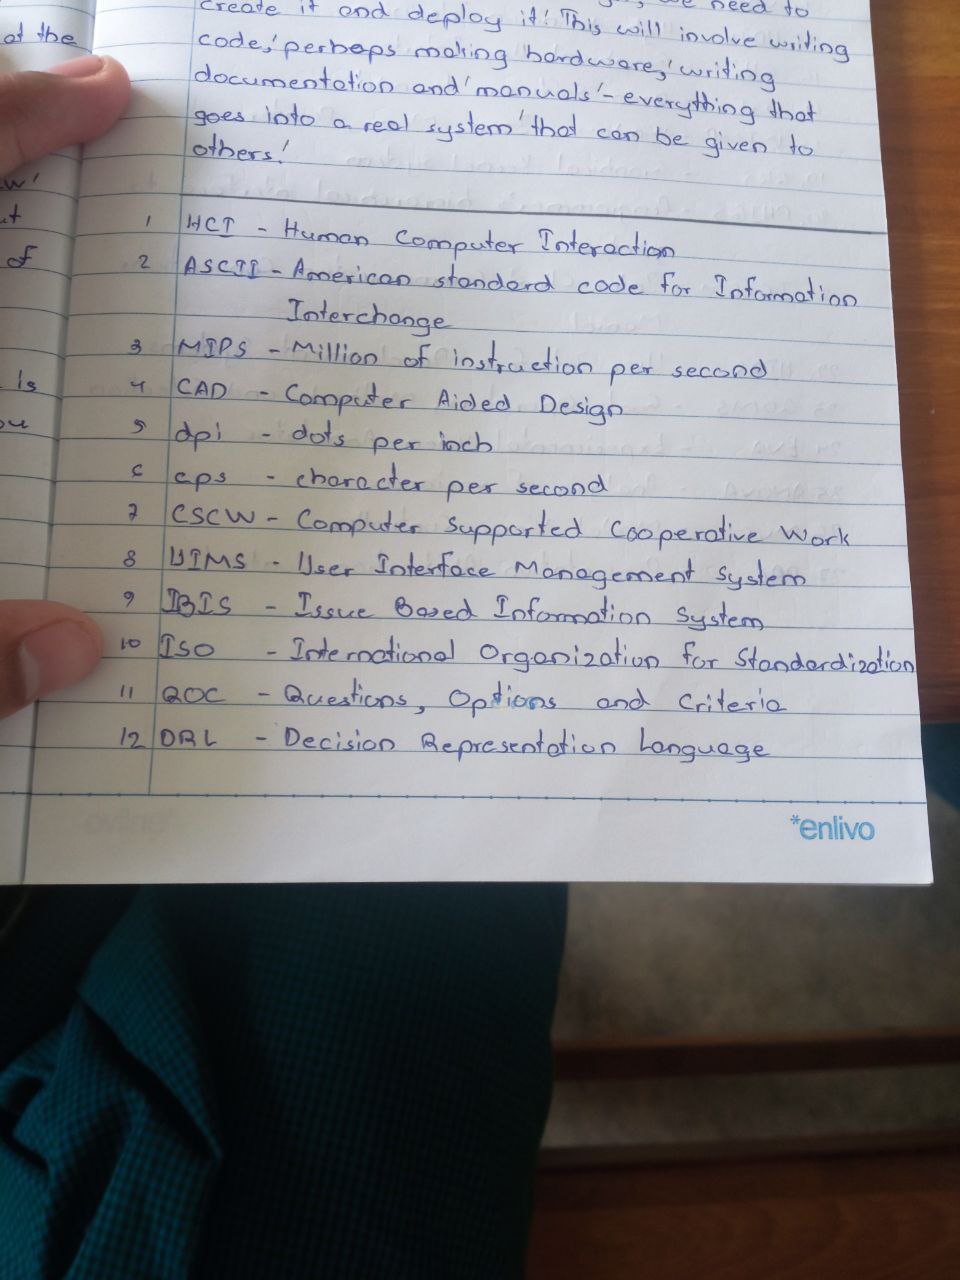 need to
create it and deploy it! This will involve writing
code, perhaps making hardware, writing
documentation and 'manuals' - everything that
goes into a real system 'that can be given to
others!
at the
w'
of
is
1 HCI - Human Computer Interaction
2 ASCII - American standard code for Information
Interchange
3 MIPS - Million of instruction per second
4 CAD - Computer Aided Design
5 dpi - dots per inch
6 cps - character per second
7 CSCW - Computer Supported Cooperative Work
8 UIMS - User Interface Management System
9 IBIS - Issue Based Information System
10 ISO - International Organization for Standardization
11 QOC - Questions, Options and Criteria
12 DRL - Decision Representation Language
*enlivo